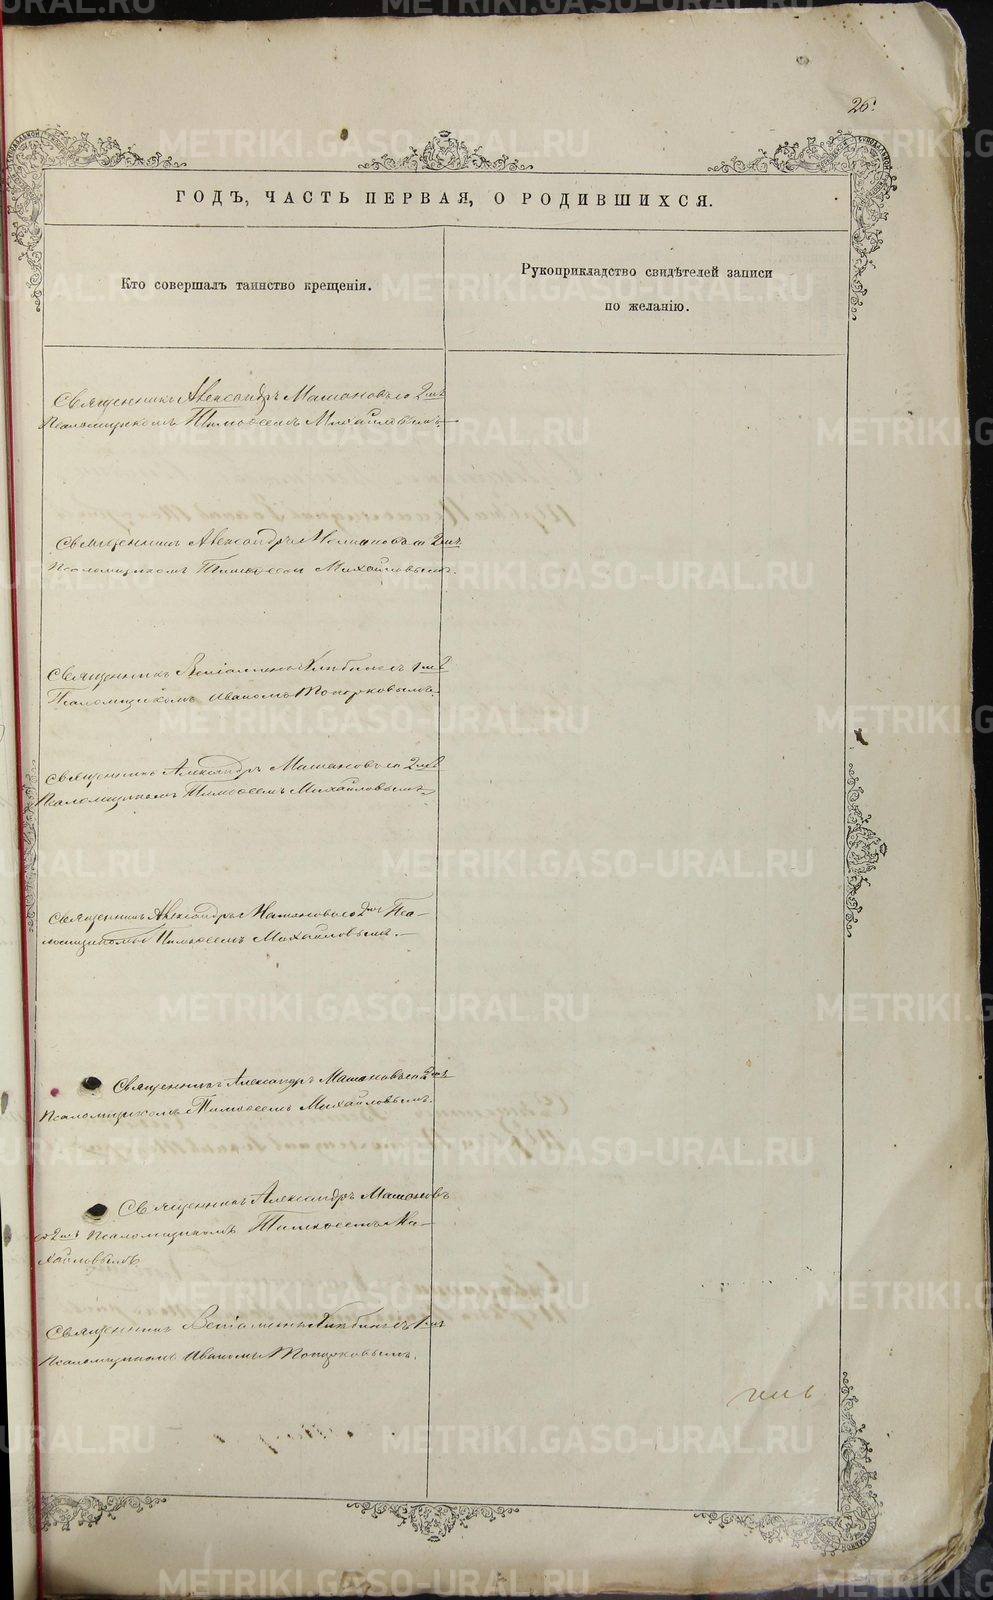 26.
ГОДЪ, ЧАСТЬ ПЕРВАЯ, О РОДИВШИХСЯ.
Кто совершалъ таинство крещенія.
Рукоприкладство свидѣтелей записи
по желанію.
Священникъ Александръ Машановъ со 2мъ
Псаломщикомъ Тимоѳеемъ Михайловымъ.
Священникъ Александръ Машановъ со 2мъ
Псаломщикомъ Тимоѳеемъ Михайловымъ.
Священникъ Веніаминъ съ 1мъ
Псаломщикомъ Иваномъ Топорковымъ.
Священникъ Александръ Машановъ со 2мъ
Псаломщикомъ Тимоѳеемъ Михайловымъ.
Священникъ Александръ Машановъ со 2мъ Пса-
ломщикомъ Тимоѳеемъ Михайловымъ.
Священникъ Александръ Машановъ со 2мъ
Псаломщикомъ Тимоѳеемъ Михайловымъ.
Священникъ Александръ Машановъ
со 2мъ Псаломщикомъ Тимоѳеемъ Ми-
хайловымъ
Священникъ Веніаминъ съ 1мъ
Псаломщикомъ Иваномъ Топорковымъ.
METRIKI.GASO-URAL.RU